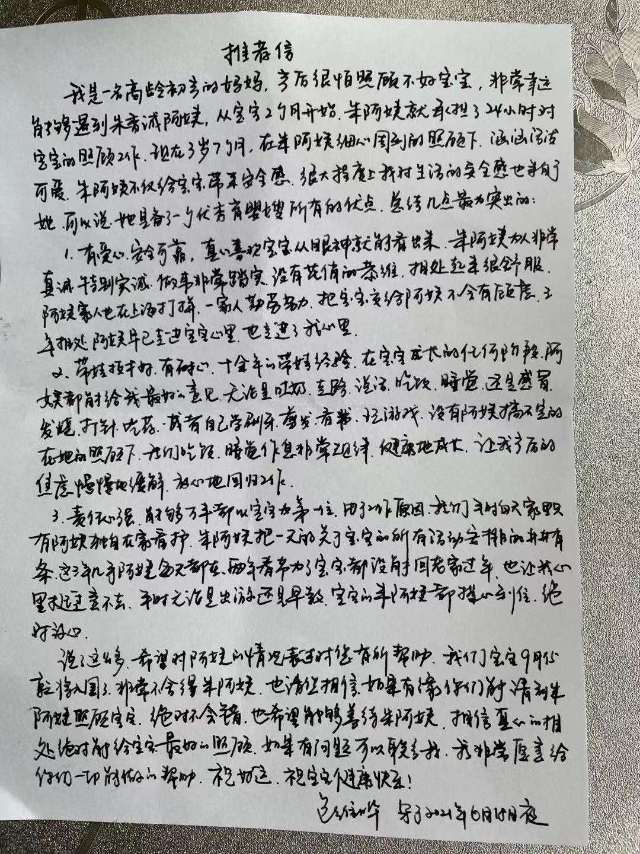 推荐信
我是一名高龄初产的妈妈，产后很怕照顾不好宝宝，非常幸运
能够遇到朱 阿姨，从宝宝2个月开始，朱阿姨就承担了24小时对
宝宝的照顾工作，现在3岁7个月，在朱阿姨细心周到的照顾下，活泼
可爱，朱阿姨不仅给宝宝带来安全感，很大程度上我对生活的安全感也来自于
她，可以说她具备了一个优秀育婴嫂所有的优点，总结几点最为突出的：
1. 有爱心，安全可靠，真心喜欢宝宝从眼神就能看出来，朱阿姨为人非常
真诚，特别实诚，做事非常踏实，没有花俏的恭维，相处起来很舒服，
阿姨家人也在上海打拼，一家人勤劳努力，把宝宝交给阿姨不会有顾虑，三
年相处，阿姨早已走进宝宝心里，也走进了我心里。
2. 带娃很好，有耐心，十余年的带娃经验，在宝宝成长的任何阶段，阿
姨都能给我最好的意见，无论是吐奶，走路，说话，吃饭，睡觉，还是感冒
发烧，打针，吃药，或者自己学刷牙，玩游戏，没有阿姨搞不定的
在她的照顾下，我们吃饭，睡觉作息非常规律，健康地成长，让我产后的
焦虑慢慢地缓解，放心地回归工作。
3. 责任心强，能够万事都以宝宝为第一位，由于工作原因，我们平时白天家里只
有阿姨独自在家看护，朱阿姨把一天的关于宝宝的所有活动安排的井井有
条，这3年几乎阿姨每天都在，两年春节为了宝宝都没能回老家过年，也让我心
里过意不去，平时无论是出游还是早教，宝宝的朱阿姨都操心到位，绝
对放心。
说了这么多，希望对阿姨的情况表述对您有所帮助，我们宝宝9月份
就将入园了，非常不舍得朱阿姨，也请您相信，如果有像你们能请到朱
阿姨照顾宝宝，绝对不会错，也希望能够善待朱阿姨，相信真心的相
处绝对能给宝宝最好的照顾，如果有问题可以联系我，我非常愿意给
你们一切能做的帮助，祝好运，祝宝宝健康快乐！
写于2021年6月 日夜